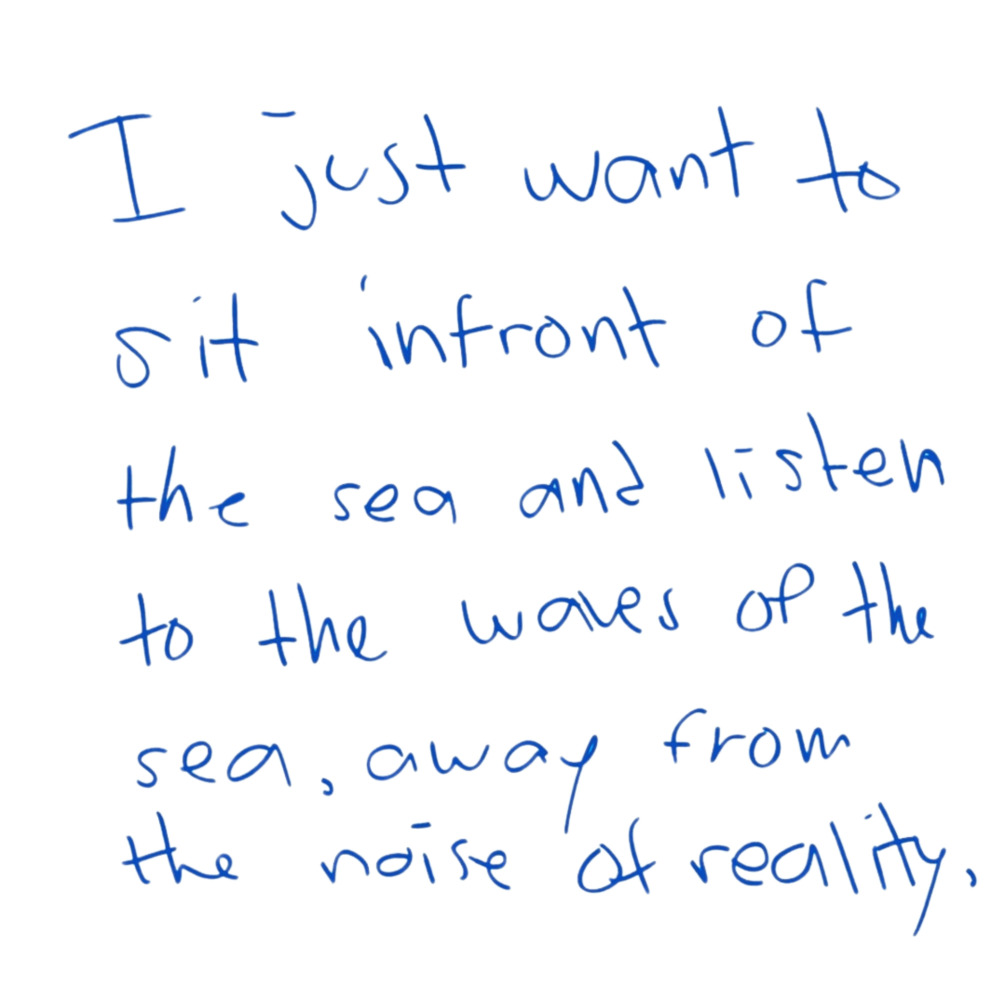 I just want to
sit infront of
the sea and listen
to the waves of the
sea, away from
the noise of reality,